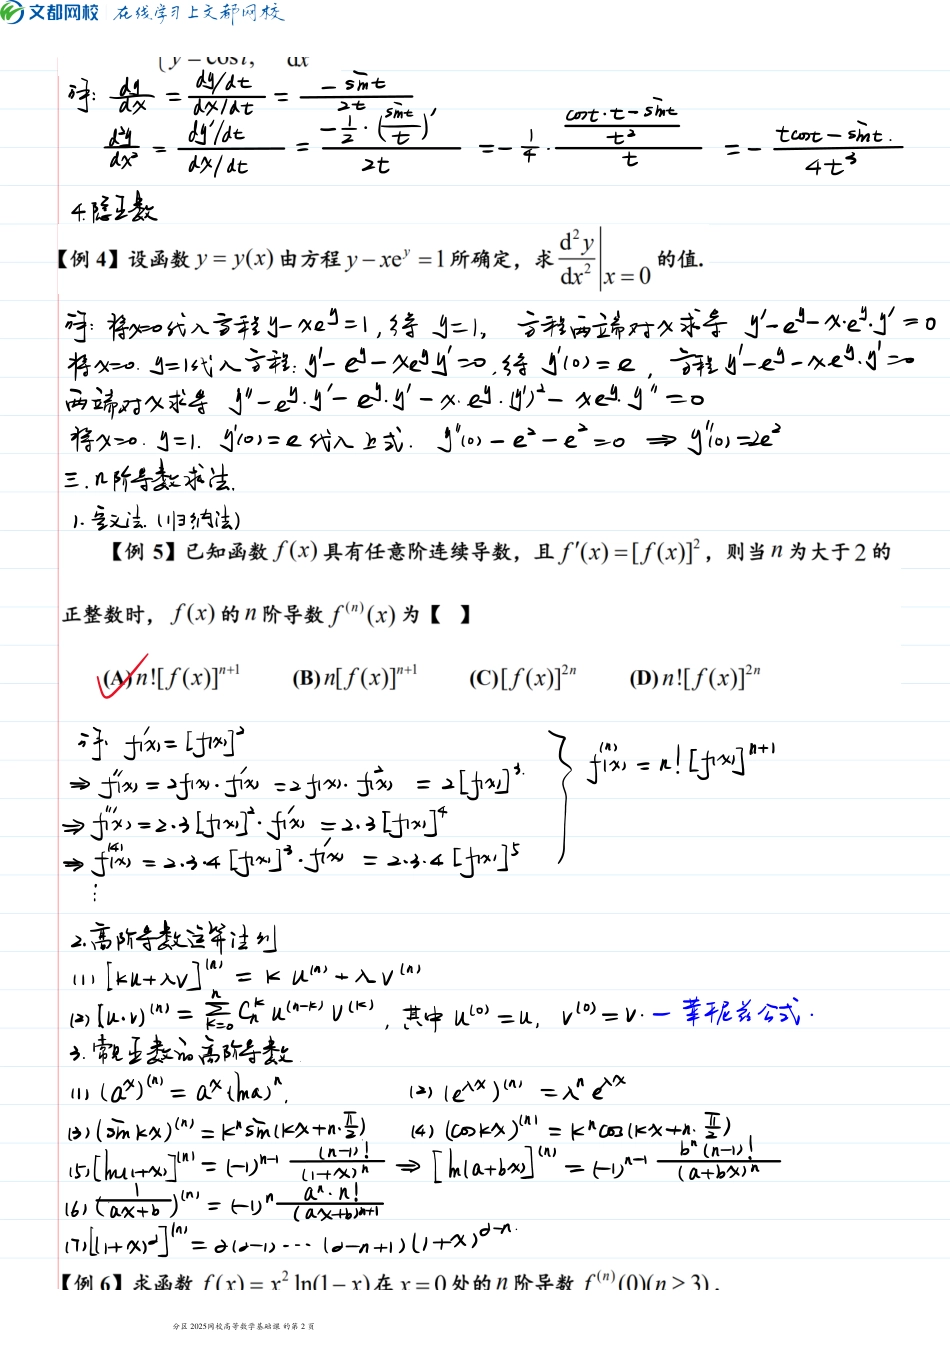 文都网校 在线学习上文都网校
y = cos t, dx
解: dy/dx = (dy/dt)/(dx/dt) = (-sint)/(2t)
d²y/dx² = (dy'/dt)/(dx/dt) = (-1/2·(sint/t)')/(2t) = -1/4·((cost·t-sint)/t²)/t = -(tcost-sint)/(4t³).
4.隐函数
【例 4】设函数 y = y(x) 由方程 y − xe^y = 1 所确定，求 d²y/dx² | x = 0 的值.
解: 将x=0代入方程y-xe^y=1,得 y=1, 方程两端对x求导 y'-e^y-x·e^y·y'=0
将x=0. y=1代入方程: y'-e^y-xe^y y'=0,得 y'(0)=e, 方程y'-e^y-xe^y·y'=0
两端对x求导 y''-e^y·y'-e^y·y'-x·e^y·(y')²-xe^y·y''=0
将x=0. y=1. y'(0)=e代入上式. y''(0)-e²-e²=0 ⇒ y''(0)=2e²
三.n阶导数求法.
1.定义法.(归纳法)
【例 5】已知函数 f(x) 具有任意阶连续导数，且 f′(x) = [f(x)]²，则当 n 为大于 2 的
正整数时， f(x) 的 n 阶导数 f^(n)(x) 为【 】
(A) n![f(x)]^(n+1) (B) n[f(x)]^(n+1) (C) [f(x)]^(2n) (D) n![f(x)]^(2n)
解: f'(x)=[f(x)]²
⇒ f''(x)=2f(x)·f'(x)=2f(x)·f²(x) =2[f(x)]³.
⇒ f'''(x)=2·3[f(x)]²·f'(x) =2·3[f(x)]⁴
⇒ f^(4)(x) =2·3·4[f(x)]³·f'(x) =2·3·4[f(x)]⁵
f^(n)(x)=n![f(x)]^(n+1)
⋮
2.高阶导数运算法则
(1) [ku+λv]^(n) = k u^(n)+λv^(n)
(2) [u·v]^(n) = Σ_{k=0}^{n} C_n^k u^(n-k) v^(k), 其中 u^(0)=u, v^(0)=v. — 莱布尼兹公式.
3.常见函数的高阶导数
(1) (a^x)^(n) = a^x(lna)^n. (2) (e^(λx))^(n) = λ^n e^(λx)
(3) (sinkx)^(n) = k^n sin(kx+n·π/2) (4) (coskx)^(n) = k^n cos(kx+n·π/2)
(5) [ln(1+x)]^(n) = (-1)^(n-1) (n-1)!/(1+x)^n ⇒ [ln(a+bx)]^(n) = (-1)^(n-1) b^n(n-1)!/(a+bx)^n
(6) (1/(ax+b))^(n) = (-1)^n a^n·n!/(ax+b)^(n+1)
(7) [(1+x)^α]^(n) = α(α-1)···(α-n+1)(1+x)^(α-n).
【例 6】求函数 f(x) = x² ln(1 − x) 在 x = 0 处的 n 阶导数 f^(n)(0)(n ≥ 3).
分区 2025网校高等数学基础课 的第 2 页